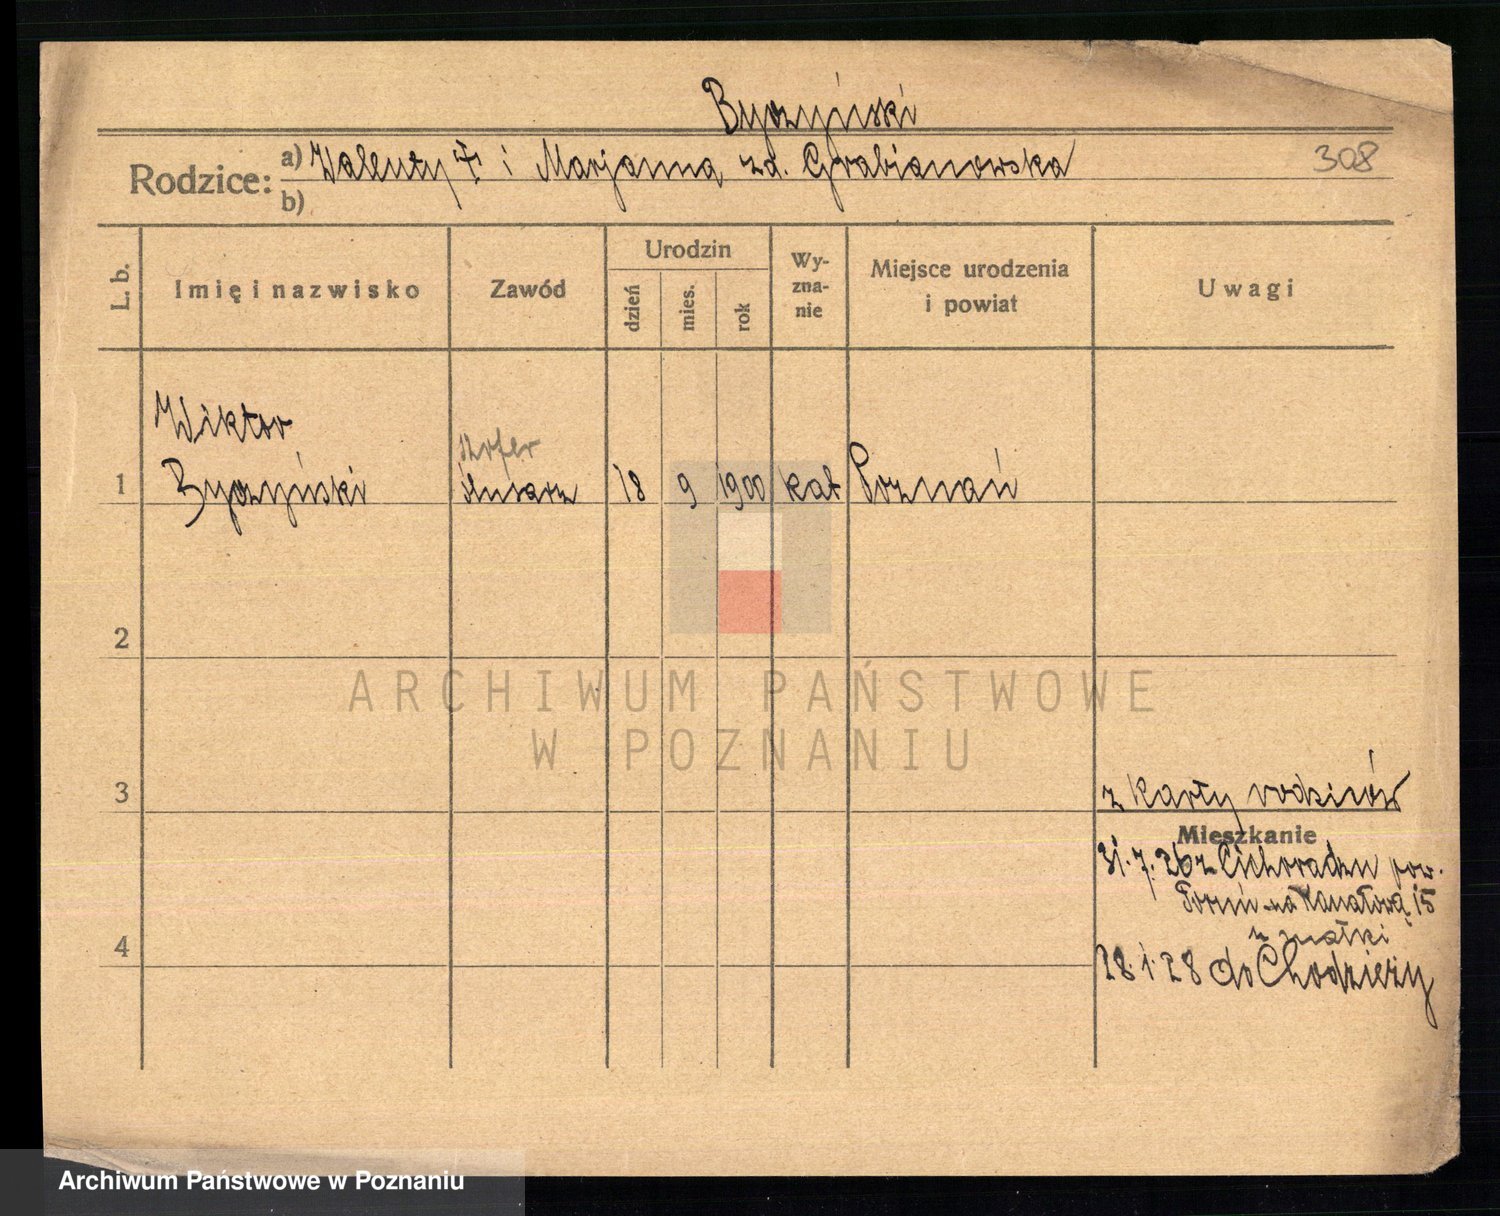 Byczyński
Rodzice: a) Walenty i Marjanna zd. Grabianowska
308
b)
L. b.
Imię i nazwisko
Zawód
Urodzin
dzień
mies.
rok
Wy-
zna-
nie
Miejsce urodzenia
i powiat
Uwagi
Wiktor
szofer
1 Byczyński ślusarz 18 9 1900 kat Poznań
2
ARCHIWUM PAŃSTWOWE
W POZNANIU
3
z karty rodziców
Mieszkanie
31.7.26 z Cichoradzu pow.
Toruń na Kanałową 15
u matki
4
28.1.28 do Chodzieży
Archiwum Państwowe w Poznaniu